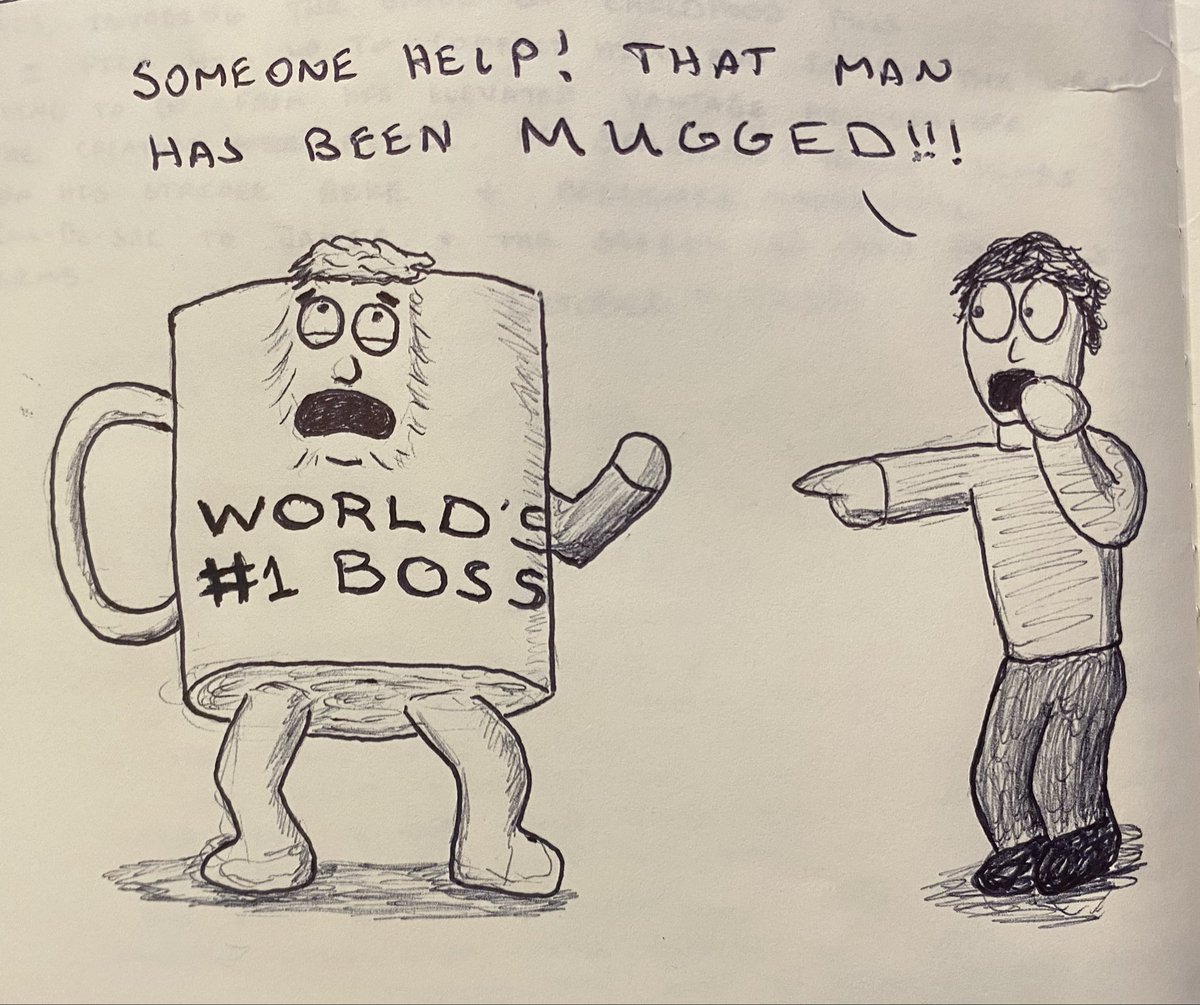 SOMEONE HELP! THAT MAN
HAS BEEN MUGGED!!!
WORLD'S
#1 BOSS